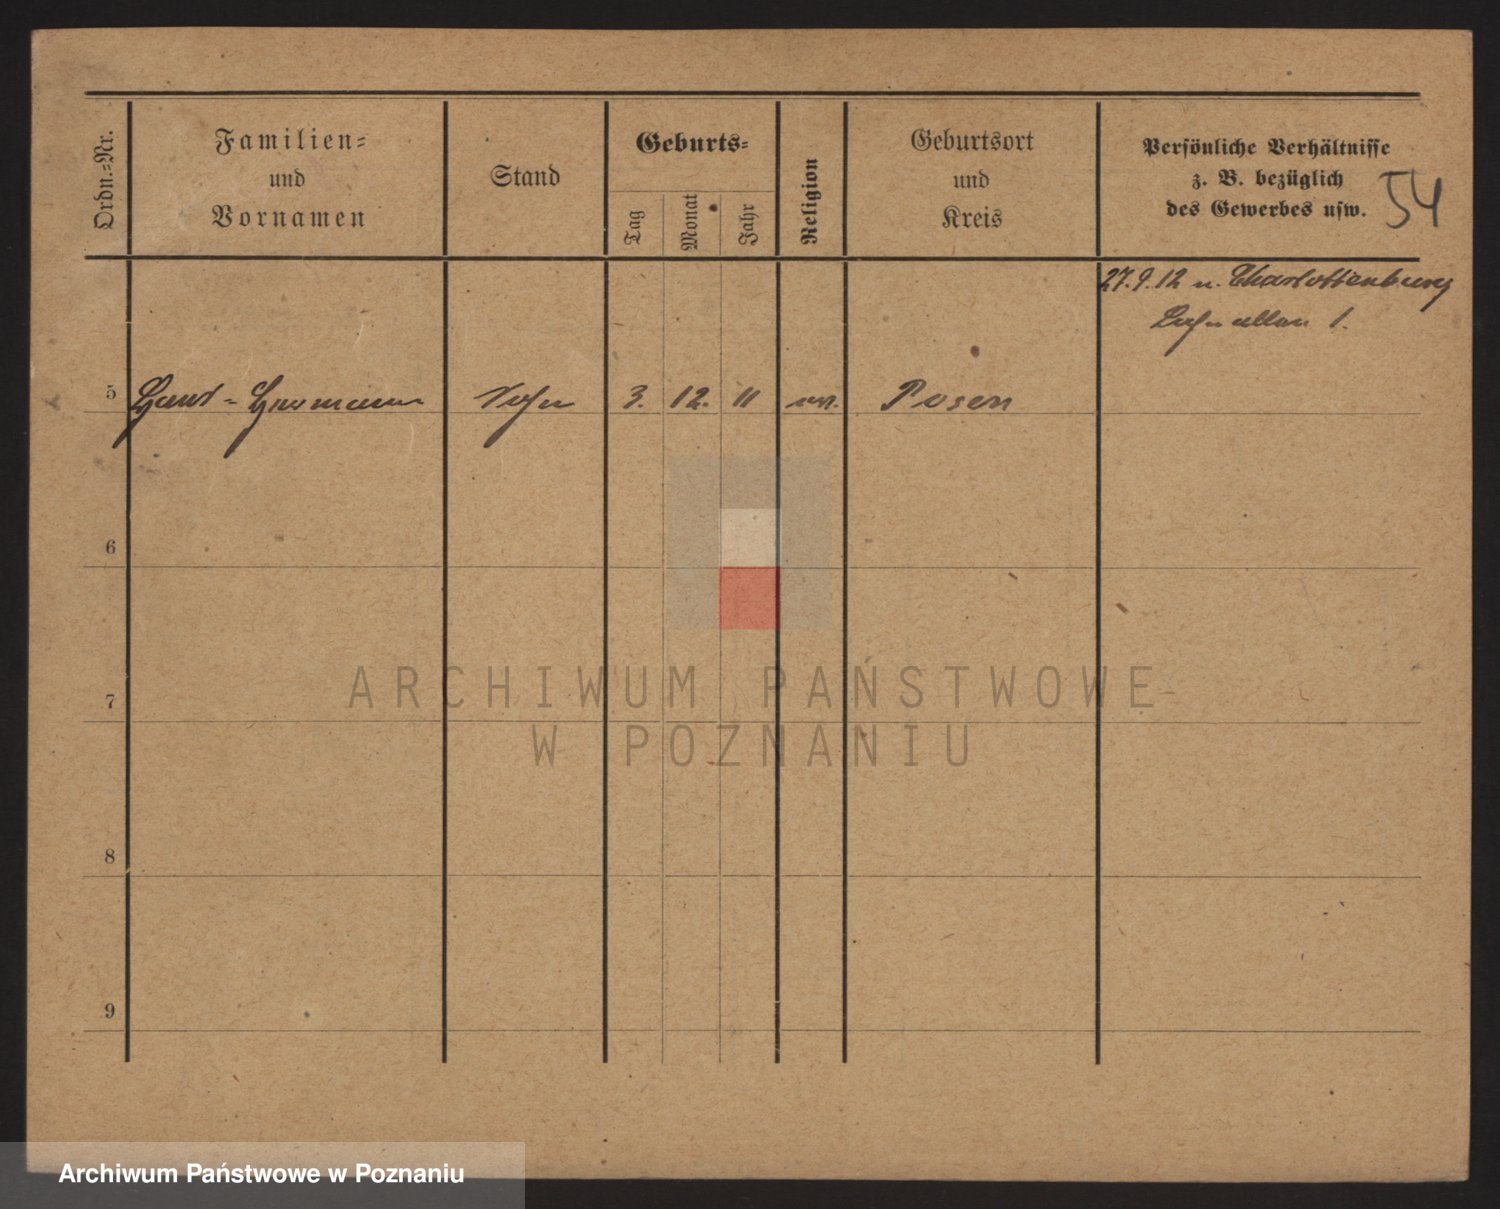 Ordn.=Nr.
Familien=
und
Vornamen
Stand
Geburts=
Tag
Monat
Jahr
Religion
Geburtsort
und
Kreis
Persönliche Verhältnisse
z. B. bezüglich
des Gewerbes usw.
54
27.9.12 n. Charlottenburg
1.
5 Hans=Hermann Sohn 3. 12. 11 ev. Posen
6
7
8
9
ARCHIWUM PAŃSTWOWE
W POZNANIU
Archiwum Państwowe w Poznaniu